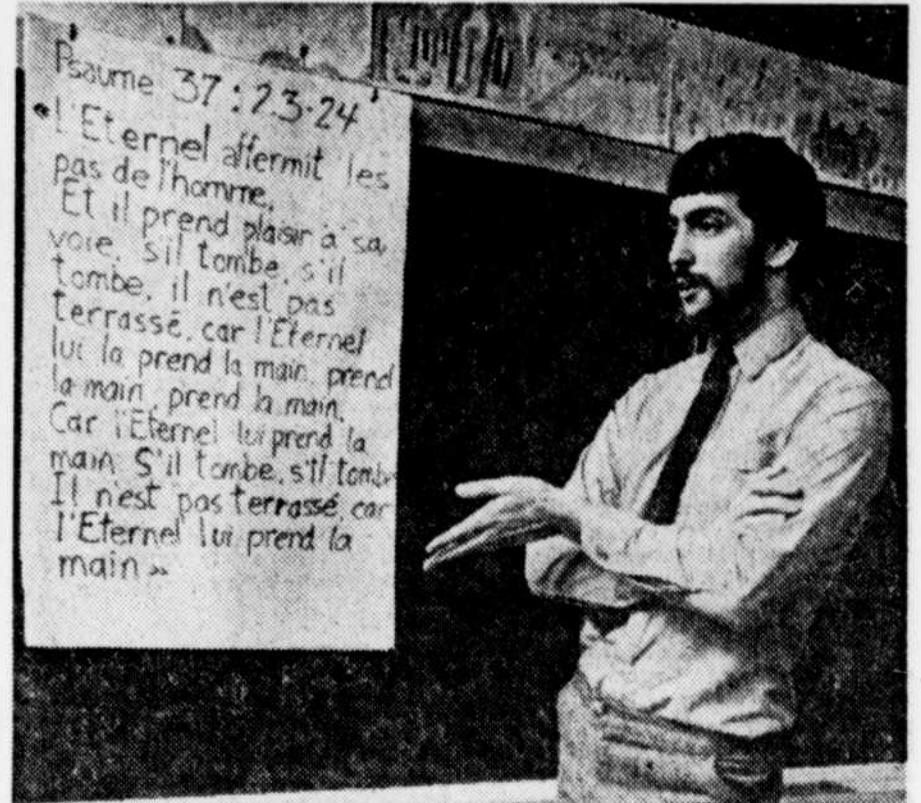 Psaume 37:23-24
«L'Eternel affermit les
pas de l'homme,
Et il prend plaisir à sa
voie. S'il tombe, s'il
tombe, il n'est pas
terrassé, car l'Eternel
lui la prend la main, prend
la main, prend la main.
Car l'Eternel lui prend la
main. S'il tombe, s'il tombe
Il n'est pas terrassé, car
l'Eternel lui prend la
main»